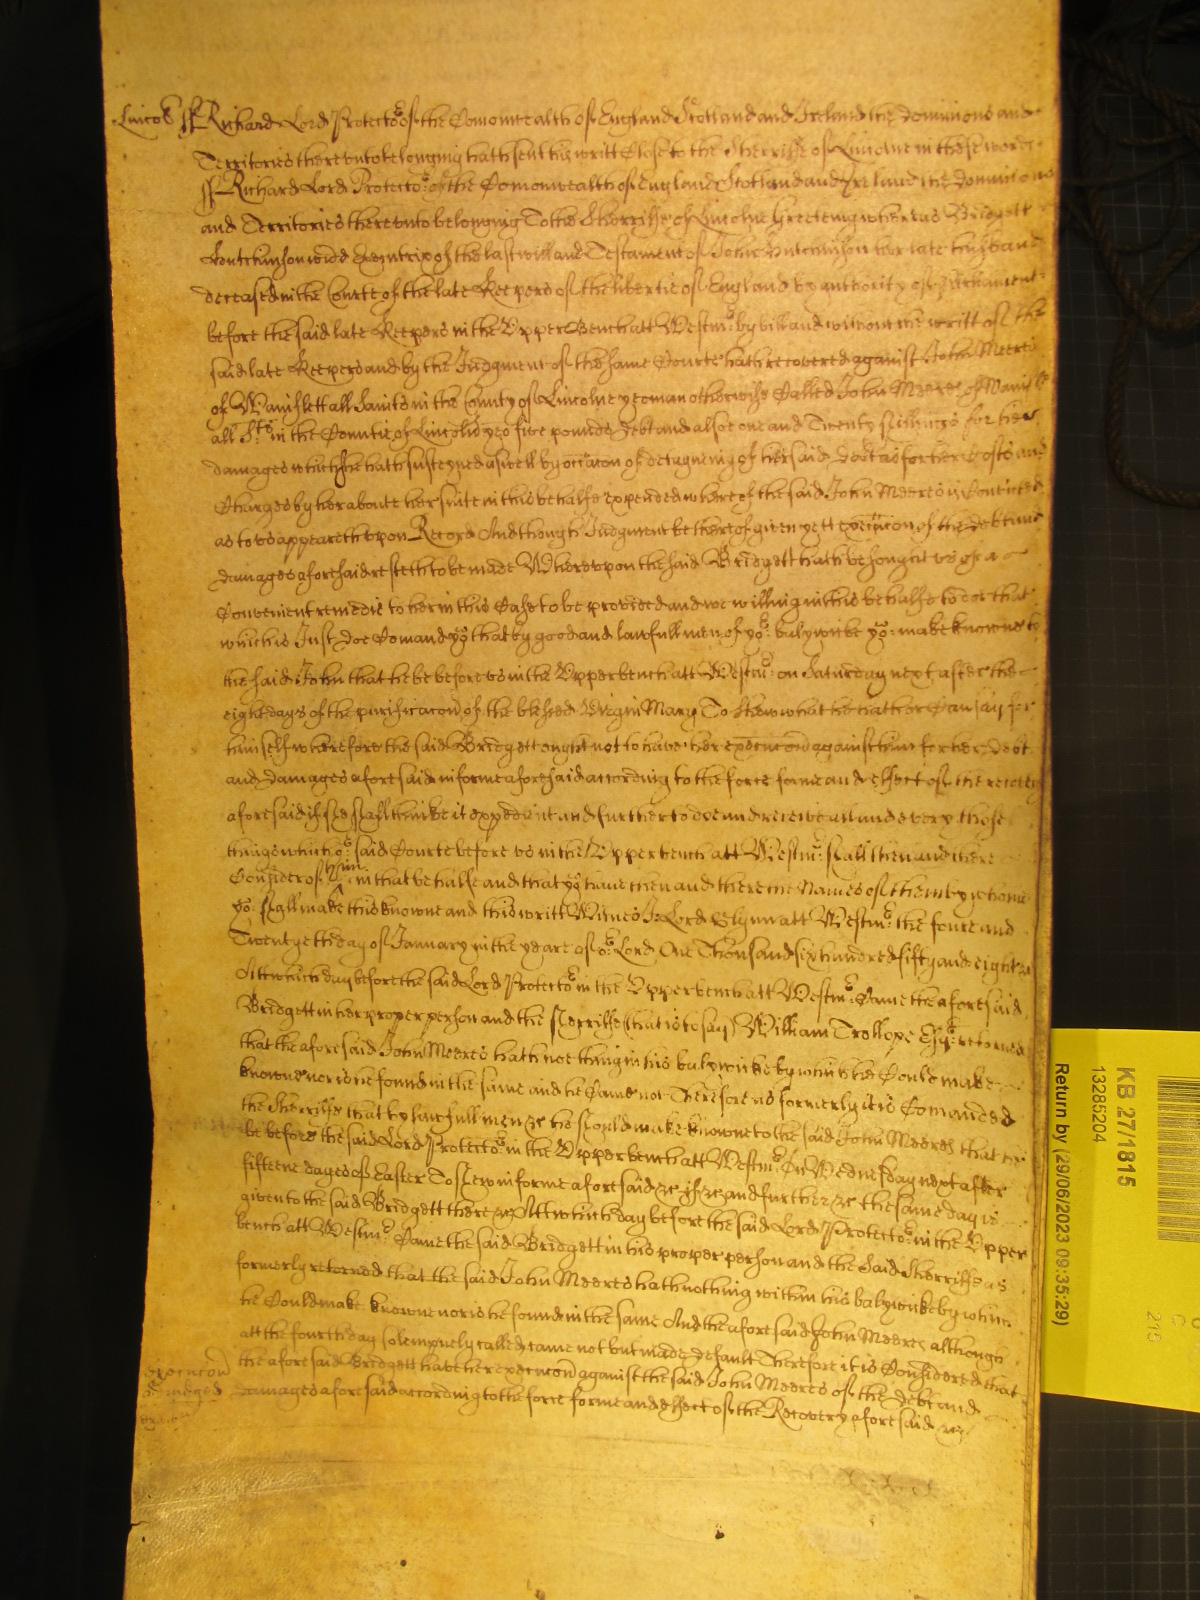 Lincoln ss Richard Lord Protector of the Comonwealth of England Scotland and Ireland the Dominions and
Territories thereunto belonging hath sent his writt Close to the Sherriffe of Lincolne in these words
ss Richard Lord Protector of the Comonwealth of England Scotland and Ireland the Dominions
and Territories thereunto belonging To the Sherriffe of Lincolne Greeteing whereas Bridgett
Hutchinson widd Executrix of the last will and Testament of John Hutchinson her late husband
deceased in the Courte of the late Keepers of the libertie of England by authority of Parliament
before the said late Keepers in the Upper Bench att Westmr: by bill and without the writt of the
said late Keepers and by the Judgment of the same Courte hath recovered against John Meeres
of Wainflett all Saints in the County of Lincolne yeoman otherwise Called John Meeres of Wainflett
all Sts in the Countie of Lincoln yeo five pounds Debt and alsoe one and Twenty shillings for her
damages which she hath susteyned aswell by occacon of deteyneing of her said Debt as for her costs and
Charges by her aboute her suite in this behalfe expended whereof the said John Meeres is Convicted
as to us appeareth upon Record And though Judgment be thereof given yett execucon of the debt and
damages aforesaid resteth to be made Whereupon the said Bridgett hath besought us of a
Convenient remedie to her in this Case to be provided and we willing in this behalfe to doe that
which is Just Doe Comand yo: that by good and lawfull men of yor: balywicke yo: make knowne to
the said John that he be before us in the Upper bench att Westmr: on Saturday next after the
eight days of the purificacon of the blessed Virgin Mary To shew what he hath or Can say for
himself wherefore the said Bridgett ought not to have her execucon against him for her Debt
and Damages aforesaid in forme aforesaid according to the force forme and effect of the recovery
aforesaid if she shall thinke it expedient and further to doe and receive all and every those
things which or: said Courte before us in the Upper bench att Westmr: shall then and there
Consider of him in that behalfe and that yo: have then and there the Names of them by whome
yo: shall make this knowne and this writt Witnes J: Lord Glynn att Westmr: the foure and
Twentyeth day of January in the yeare of or: Lord One Thousand six hundred fifty and eight &c
Att which day before the said Lord Protector in the Upper bench att Westmr: Came the aforesaid
Bridgett in her proper person and the Sherriffe (that is to say) William Trollope Esqr: retorned
that the aforesaid John Meeres hath not thing in his balywicke by which he Could make
knowne nor is he found in the same and he Came not Therefore as formerly it is Comanded
the Sherriffe that by lawfull men &c he should make knowne to the said John Meeres that he
be before the said Lord Protector: in the Upper bench att Westmr: On Wednesday next after
fifteene dayes of Easter To shew in forme aforesaid &c if &c and further &c the same day is
given to the said Bridgett there &c Att which day before the said Lord Protector: in the Upper
bench att Westmr: Came the said Bridgett in his proper person and the Said Sherriffe as
formerly retorned that the said John Meeres hath nothing within his balywicke by which
he Could make knowne nor is he found in the same And the aforesaid John Meeres although
att the fourth day solempnely called came not but made default Therefore it is Considered that
the aforesaid Bridgett have her execucon against the said John Meeres of the Debt and
damages aforesaid according to the force forme and effect of the Recovery aforesaid &c
execucon
KB 27/1815
13285204
Return by (29/06/2023 09:35:29)
215